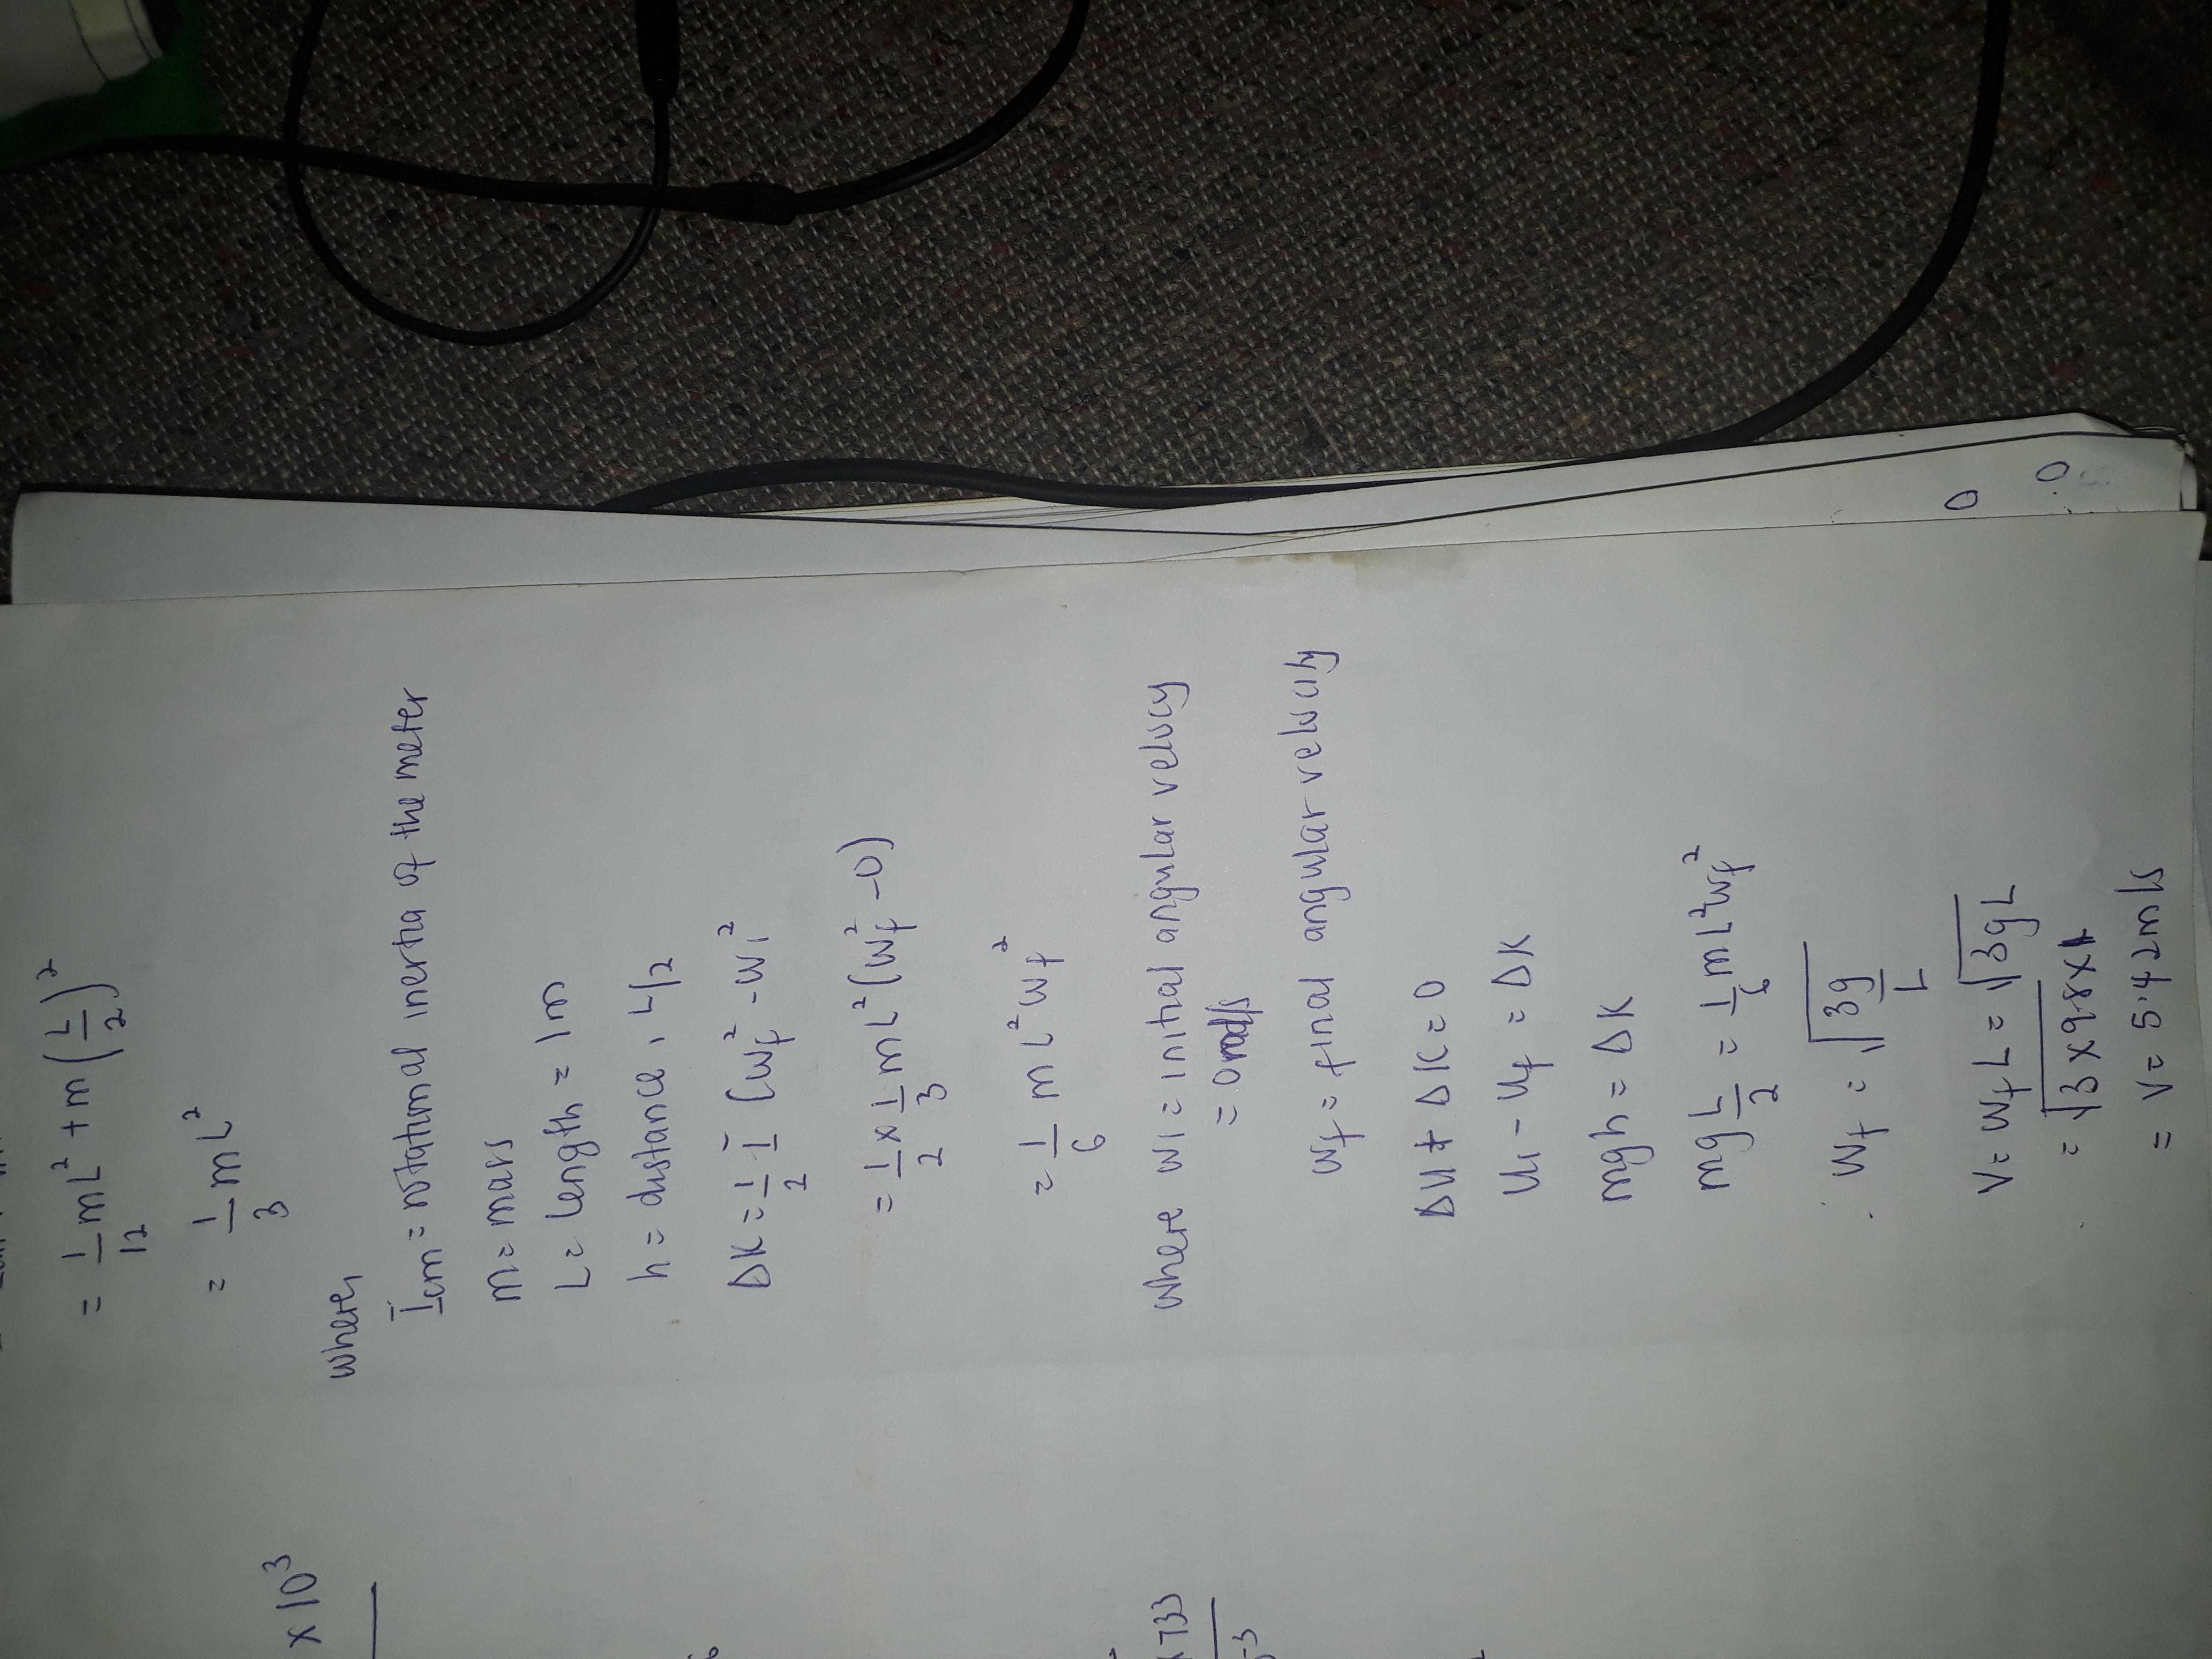 = 1/12 mL² + m(L/2)²
= 1/3 mL²
where,
Icm = rotational inertia of the meter
m = mass
L = length = 1m
h = distance, L/2
ΔK = 1/2 I (ωf² - ωi²
= 1/2 × 1/3 mL² (ωf² - 0)
= 1/6 mL²ωf²
where ωi = initial angular velocy
= 0 rad/s
ωf = final angular velocity
ΔU + ΔK = 0
Ui - Uf = ΔK
mgh = ΔK
mg L/2 = 1/6 mL²ωf²
∴ ωf = √3g/L
V = ωf L = √3gL
= √3×9.8×1
= V = 5.42m/s
× 10³
×733
-3
0
0